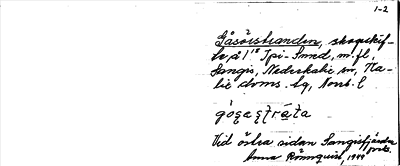 1-2
Gåsörstranden, skogskif-
te å 1¹⁸ Tpi-Smed, m.fl.,
Sangis, Nederkalix sn, Ka-
lix doms. lg, Norrb. l
Vid östra sidan Sangisfjärden
Anna Rönnquist, 1949